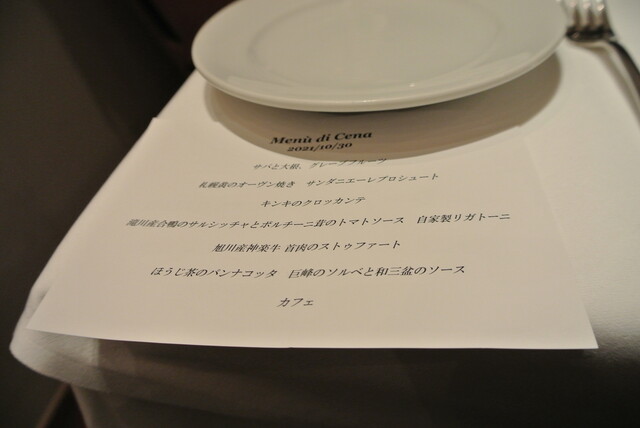 Menù di Cena
2021/10/30
サバと大根、グレープフルーツ
札幌黄のオーヴン焼き サンダニエーレプロシュート
キンキのクロッカンテ
滝川産合鴨のサルシッチャとポルチーニ茸のトマトソース 自家製リガトーニ
旭川産神楽牛 首肉のストゥファート
ほうじ茶のパンナコッタ 巨峰のソルベと和三盆のソース
カフェ